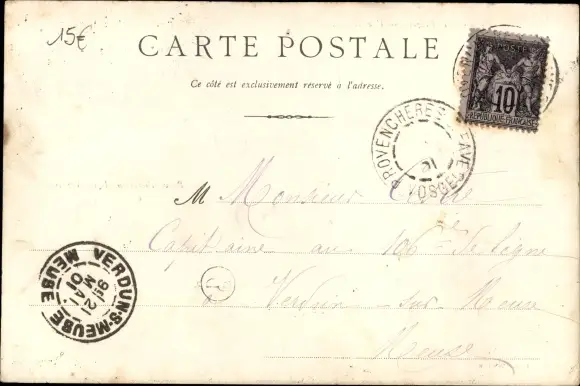 15€
CARTE POSTALE
Ce côté est exclusivement réservé à l'adresse.
POSTE
10
REPUBLIQUE FRANÇAISE
PROVENCHERES
VOSGES
M Monsieur
Capitaine au 106e de ligne
à Verdun sur Meuse
Meuse
VERDUN-S-MEUSE
21
MAI
01
MEUSE